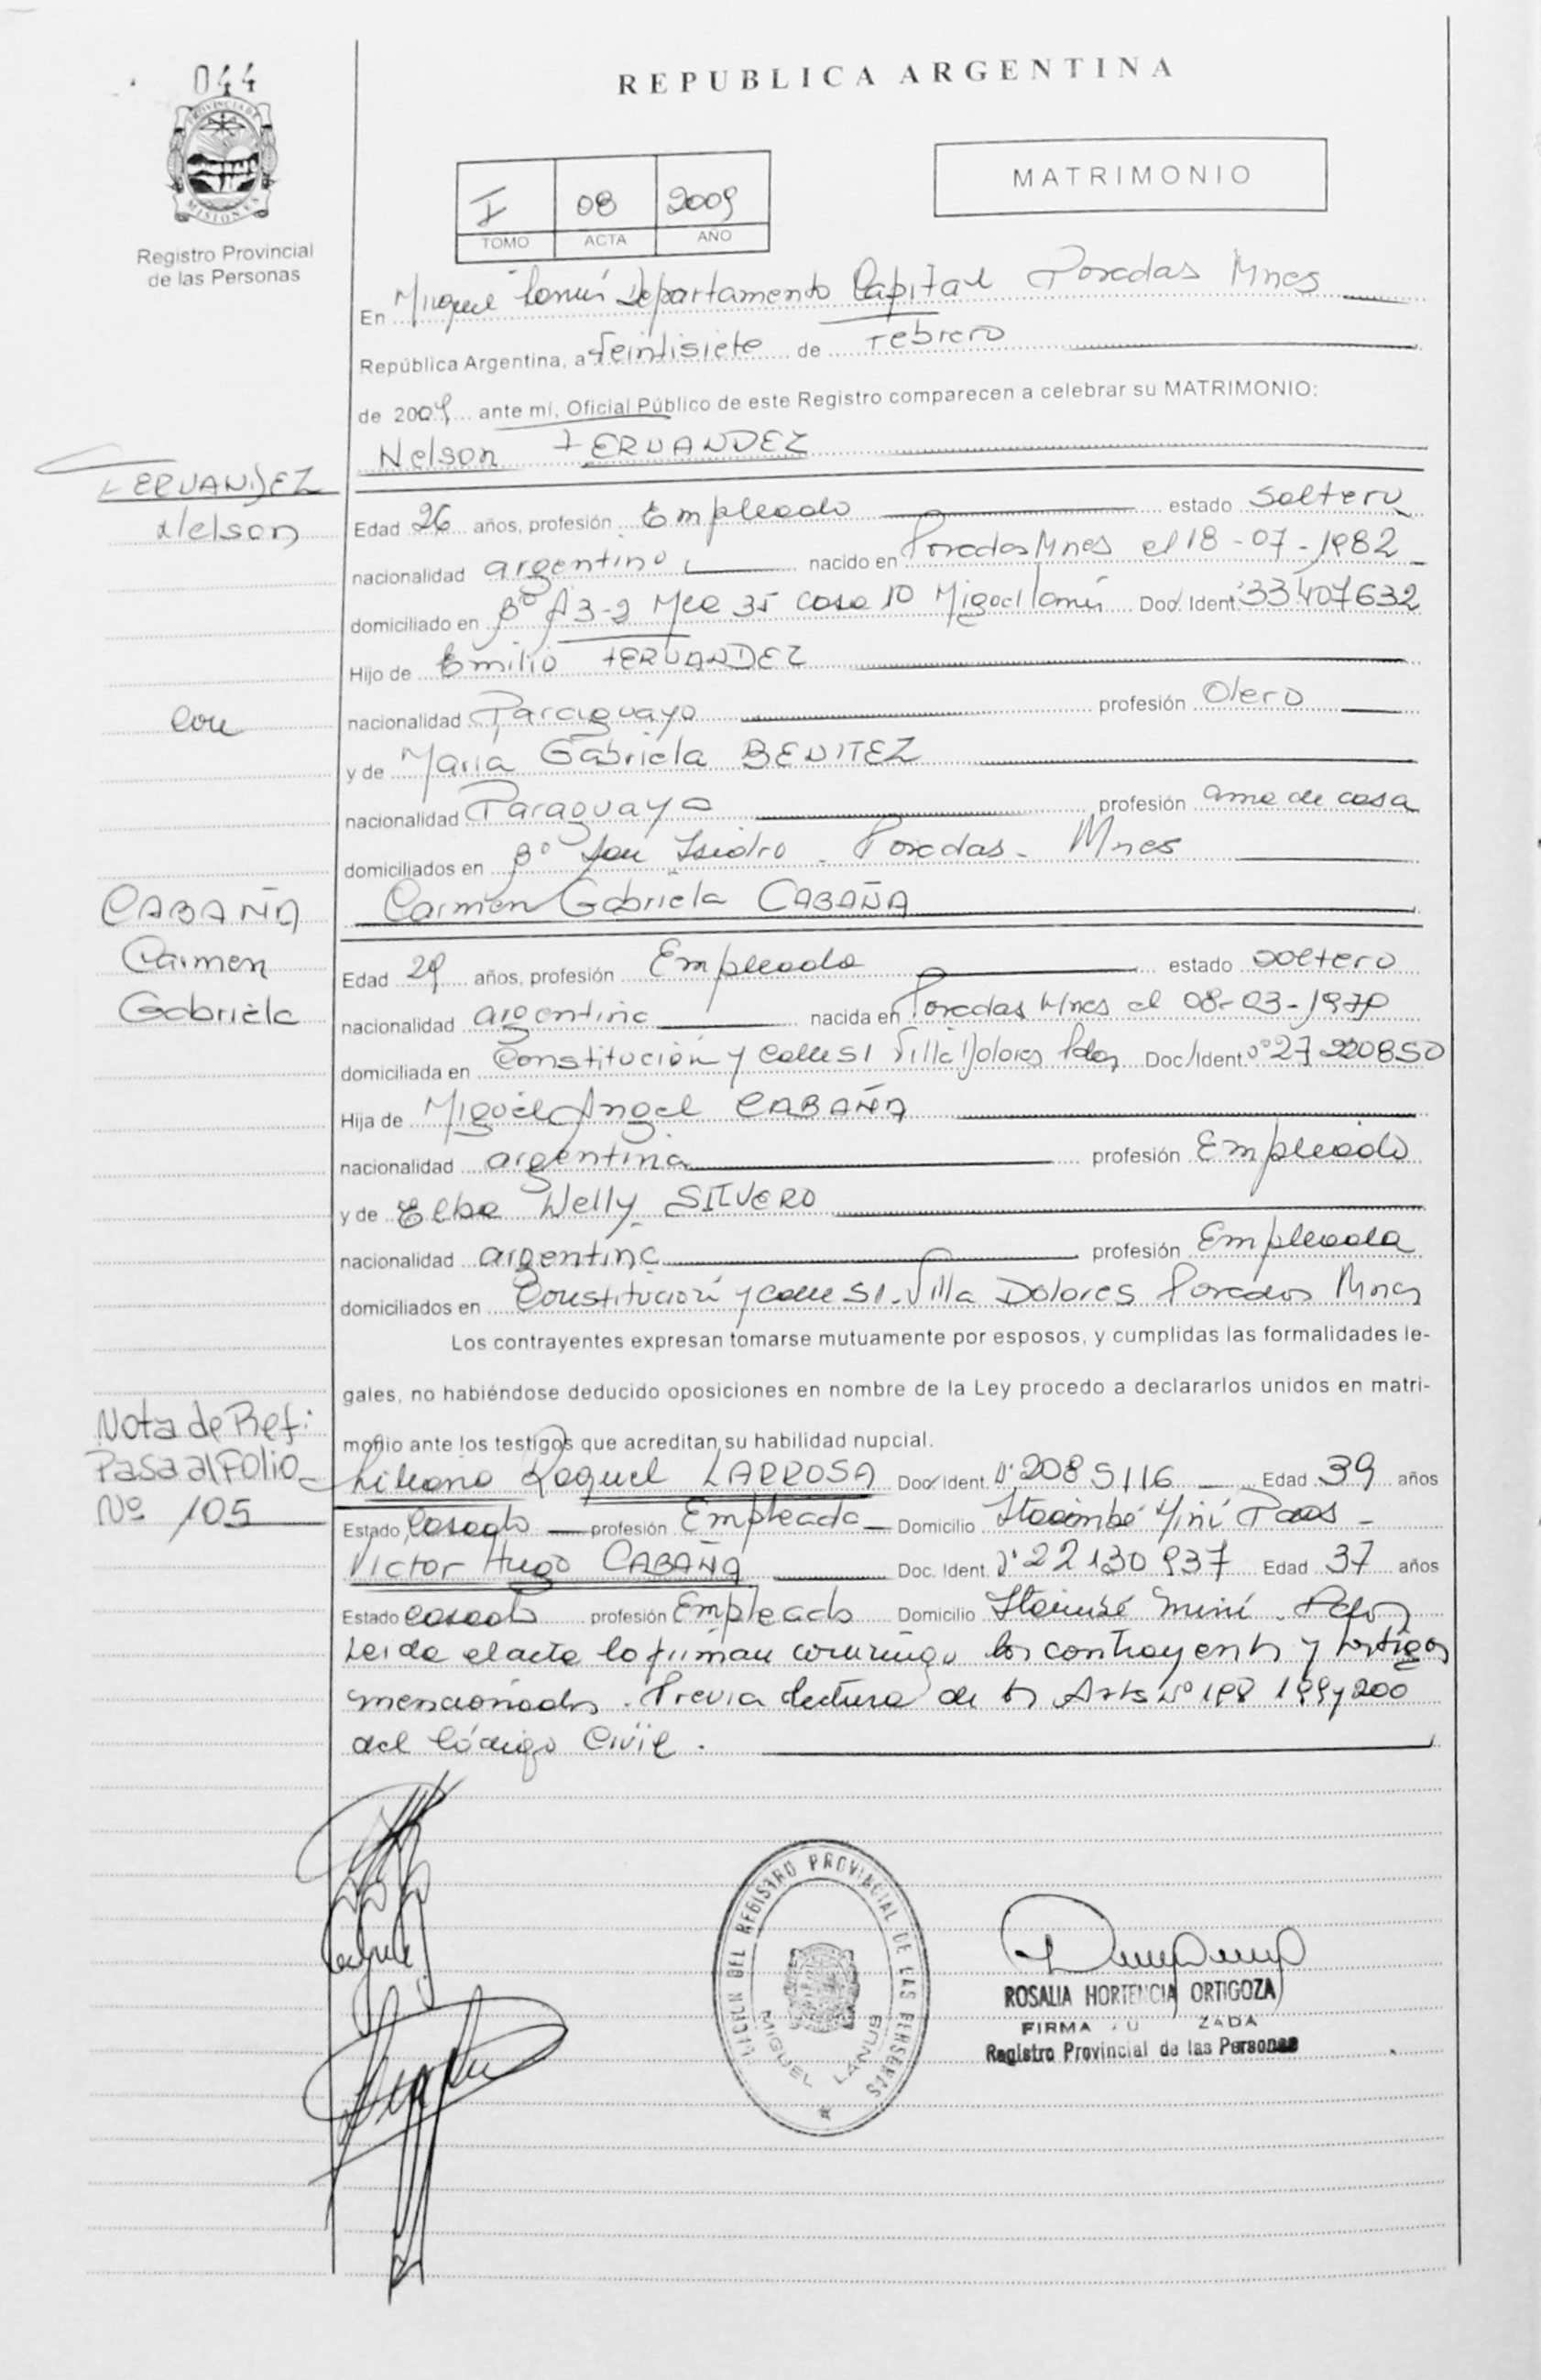 044
REPUBLICA ARGENTINA
PROVINCIA DE
MISIONES
Registro Provincial
de las Personas
I 08 2009
TOMO ACTA AÑO
MATRIMONIO
En Miguel Lanús Departamento Capital Posadas Mnes
República Argentina, a Veintisiete de Febrero
de 2009 ante mí, Oficial Público de este Registro comparecen a celebrar su MATRIMONIO:
Nelson FERNANDEZ
FERNANDEZ
Nelson
Edad 26 años, profesión Empleado estado Soltero
nacionalidad argentino nacido en Posadas Mnes el 18-07-1982
domiciliado en Bº A3-2 Mza 35 casa 10 Miguel Lanús Doc. Ident. 33407632
Hijo de Emilio FERNANDEZ
con
nacionalidad Paraguayo profesión Olero
y de María Gabriela BENITEZ
nacionalidad Paraguaya profesión ama de casa
domiciliados en Bº San Isidro - Posadas - Mnes
CABAÑA
Carmen
Gabriela
Carmen Gabriela CABAÑA
Edad 29 años, profesión Empleada estado soltero
nacionalidad argentina nacida en Posadas Mnes el 08-03-1979
domiciliada en Constitución y calle 51 Villa Dolores Pdas Doc. Ident. Nº 27220850
Hija de Miguel Angel CABAÑA
nacionalidad argentina profesión Empleado
y de Elba Nelly SILVERO
nacionalidad argentina profesión Empleada
domiciliados en Constitución y calle 51 - Villa Dolores Posadas Mnes
Los contrayentes expresan tomarse mutuamente por esposos, y cumplidas las formalidades le-
gales, no habiéndose deducido oposiciones en nombre de la Ley procedo a declararlos unidos en matri-
monio ante los testigos que acreditan su habilidad nupcial.
Nota de Ref:
Pasa al Folio
Nº 105
Liliana Raquel LARROSA Doc. Ident. Nº 2085116 Edad 39 años
Estado Casada profesión Empleada Domicilio Itaimbé Miní Pdas -
Victor Hugo CABAÑA Doc. Ident. Nº 22130937 Edad 37 años
Estado casado profesión Empleado Domicilio Itaimbé Miní - Pdas
Leida el acta la firman conmigo los contrayentes y testigos
mencionados. Previa lectura de los Arts Nº 198 199 y 200
del Código Civil.
DEL REGISTRO PROVINCIAL DE LAS PERSONAS
MIGUEL LANUS
ROSALIA HORTENCIA ORTIGOZA
FIRMA
Registro Provincial de las Personas